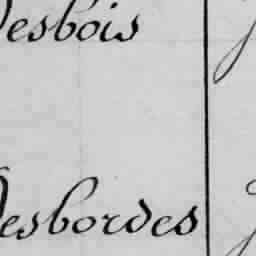 Desbois
Desbordes